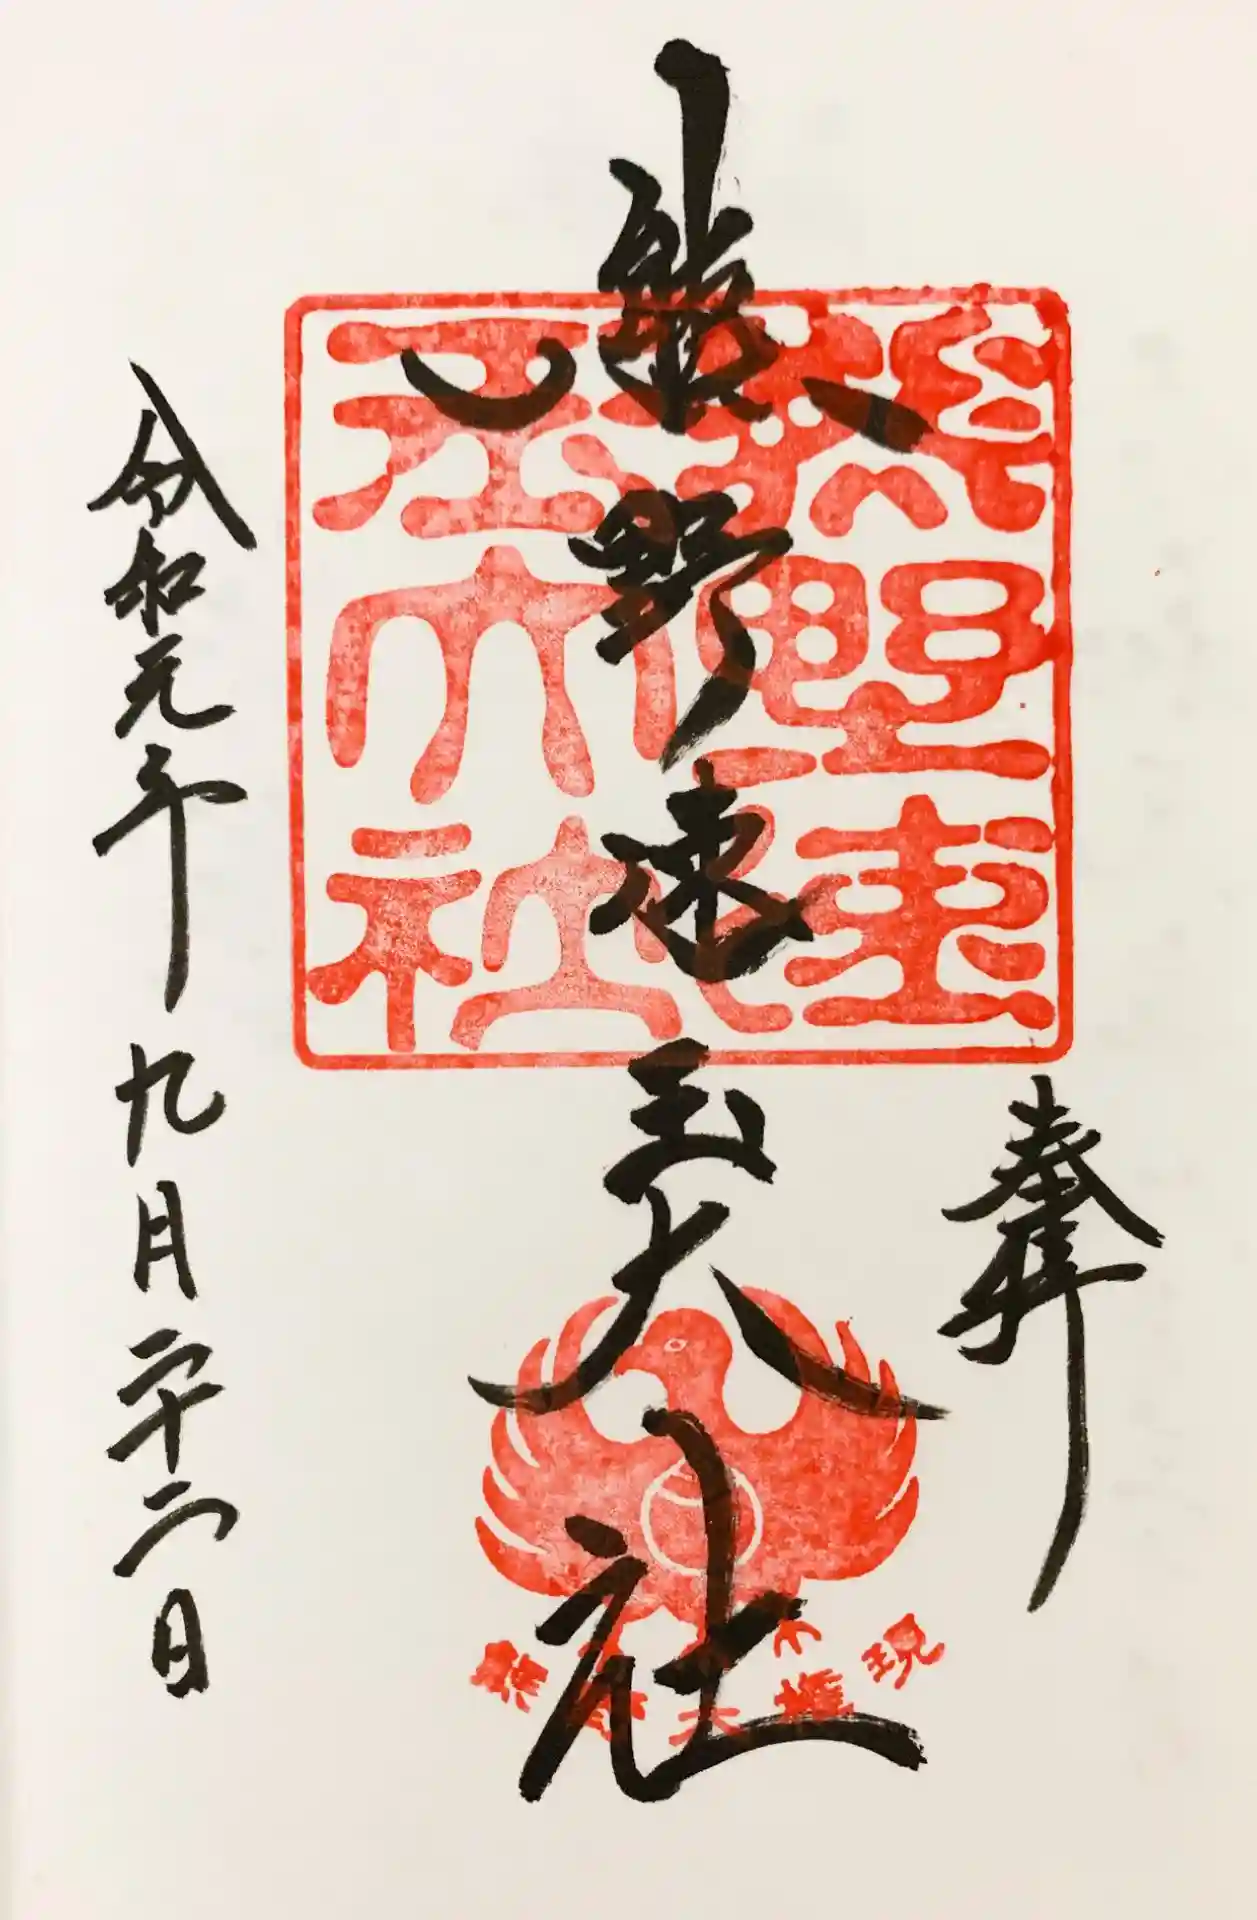 奉拝
熊野速玉大社
熊野速
玉大社
熊野大権現
令和元年九月二十二日